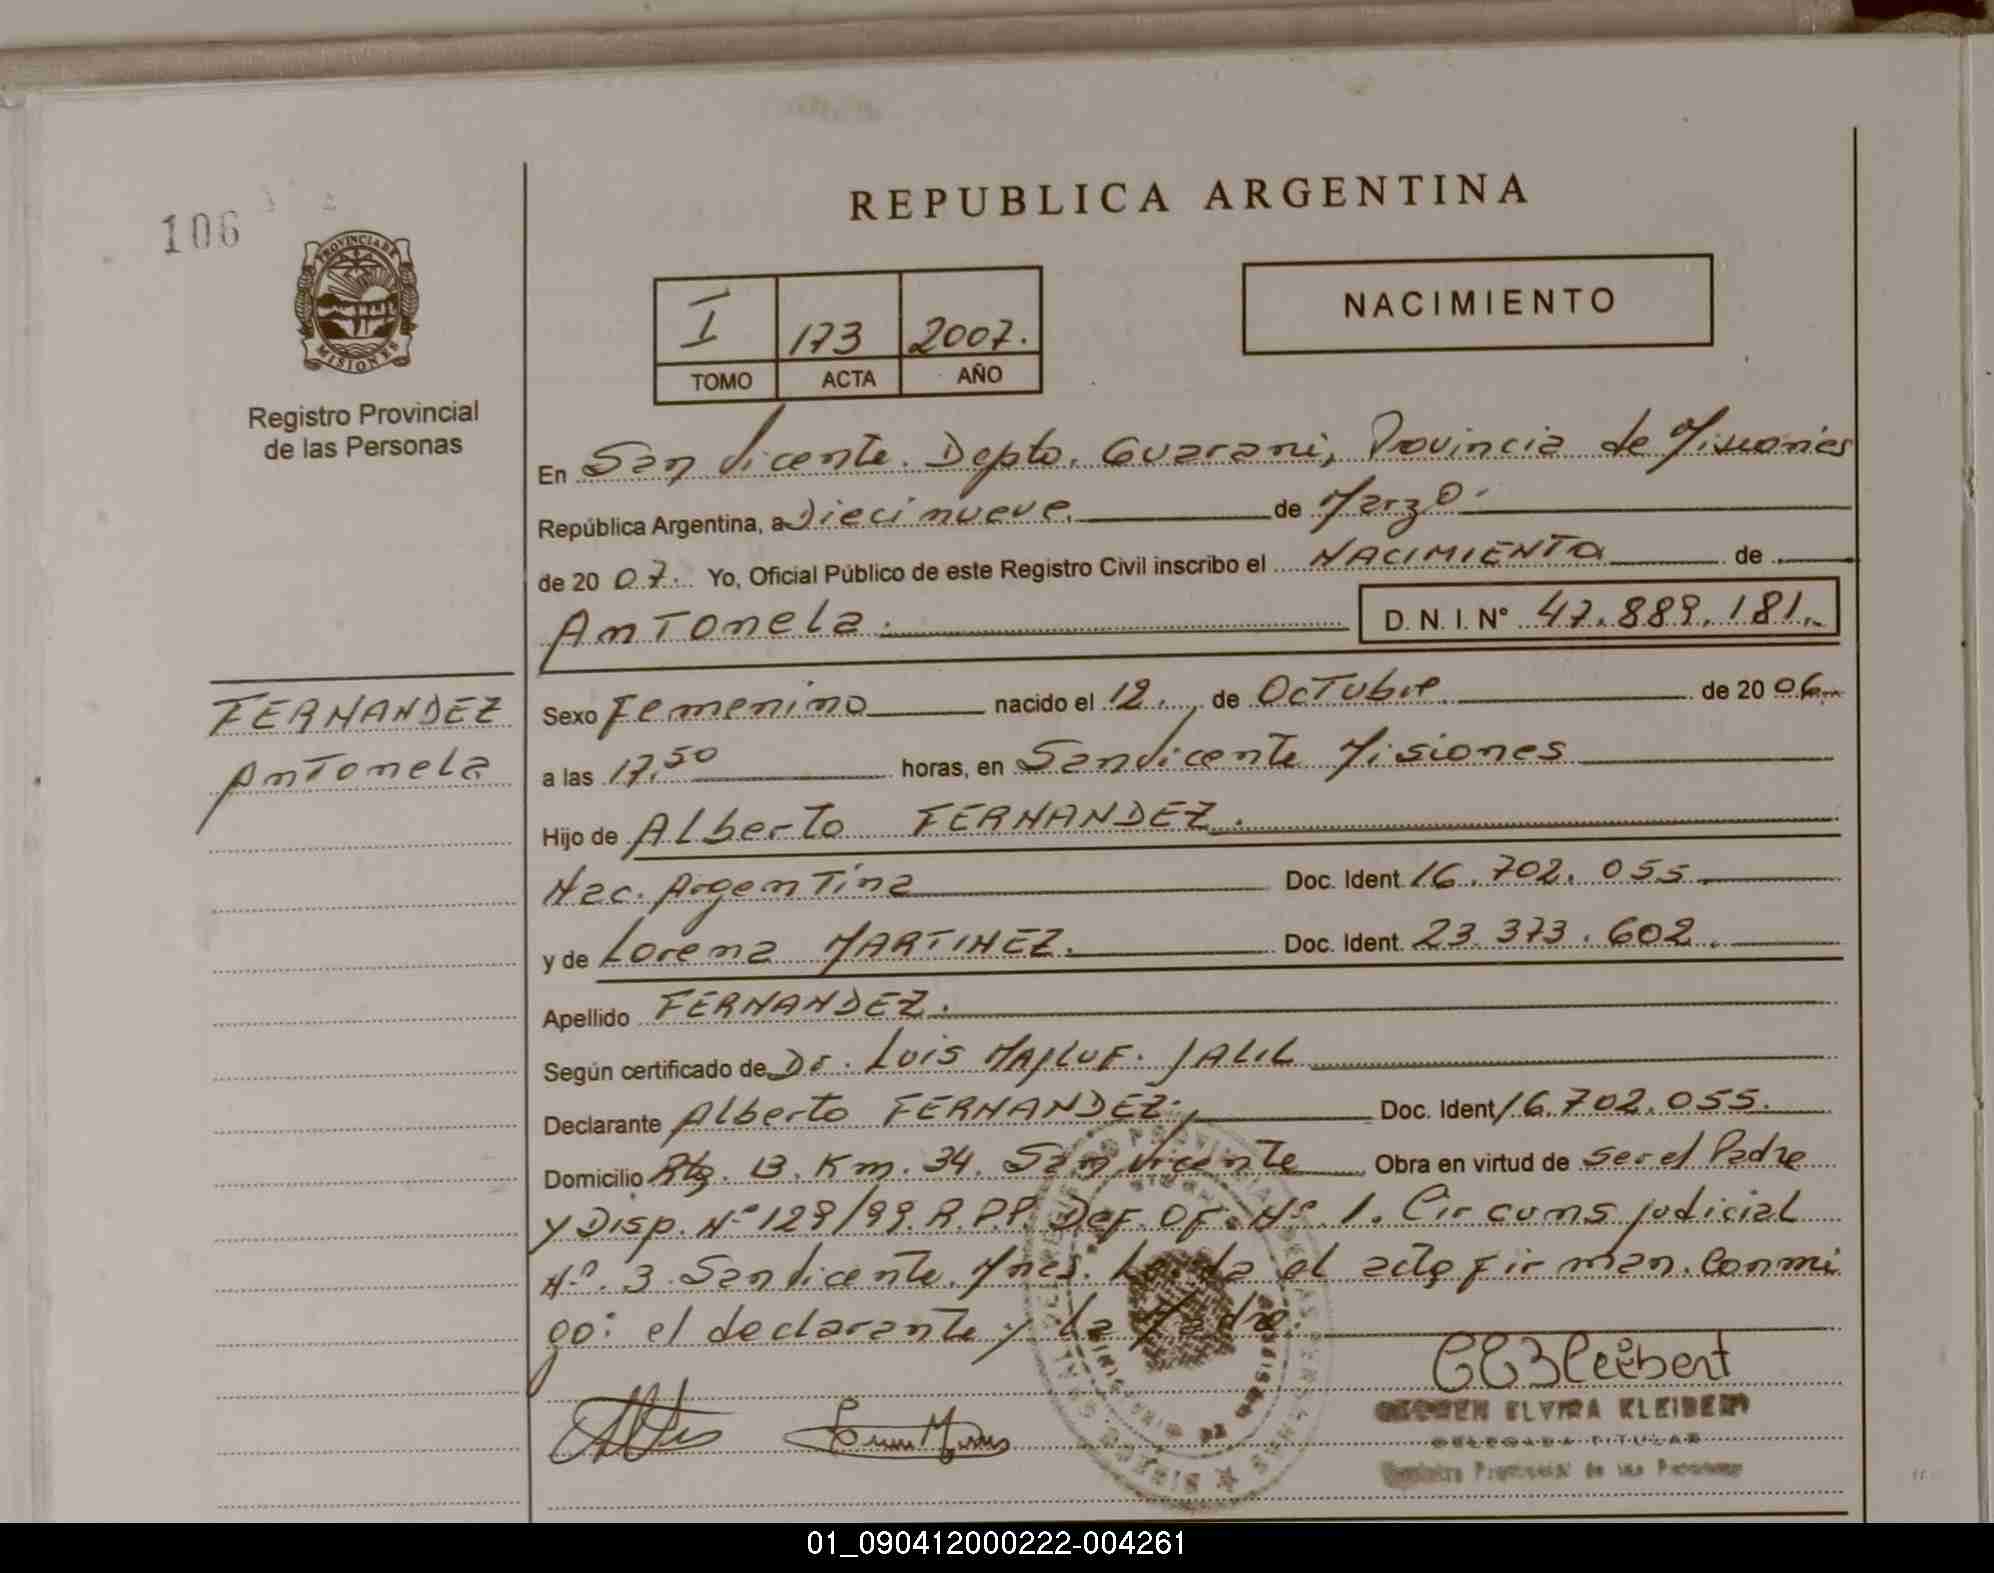 106
PROVINCIA DE
MISIONES
Registro Provincial
de las Personas
REPUBLICA ARGENTINA
I 173 2007.
TOMO ACTA AÑO
NACIMIENTO
En San Vicente. Depto. Guarani, Provincia de Misiones
República Argentina, a Diecinueve. de Marzo.
de 20 07. Yo, Oficial Público de este Registro Civil inscribo el NACIMIENTO de
Antonela. D. N. I. N° 47.889.181.
FERNANDEZ
Antonela
Sexo Femenino nacido el 12. de Octubre de 20 06.
a las 17,50 horas, en San Vicente Misiones
Hijo de Alberto FERNANDEZ.
Nac. Argentina Doc. Ident 16.702.055
y de Lorena MARTINEZ. Doc. Ident. 23.373.602.
Apellido FERNANDEZ.
Según certificado de Dr. Luis MAJLUF. JALIL
Declarante Alberto FERNANDEZ. Doc. Ident 16.702.055.
Domicilio Rta. 13. Km. 34. San Vicente Obra en virtud de ser el Padre
y Disp. N° 129/99. R.P.P. Def. Of. N° 1. Circuns judicial
N° 3 San Vicente. Mnes. Leida el acta firman. Conmi
go: el declarante y la Madre.
CEKleibert
CARMEN ELVIRA KLEIBERT
DELEGADA TITULAR
Registro Provincial de las Personas
01_090412000222-004261